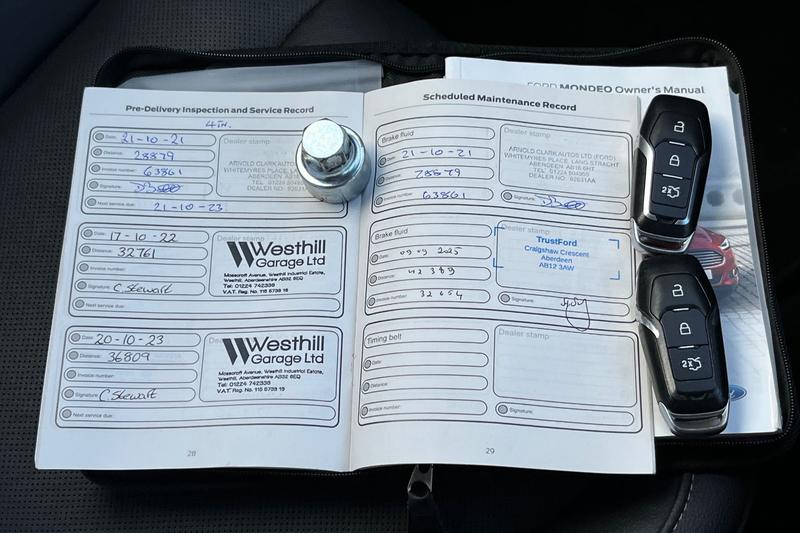 FORD MONDEO Owner's Manual
Pre-Delivery Inspection and Service Record
4TH.
Date: 21-10-21
Distance: 28879
Invoice number: 63861
Signature:
Next service due: 21-10-23
Dealer stamp
ARNOLD CLARK AUTOS LTD (FORD)
WHITEMYRES PLACE, LANG STRACHT
ABERDEEN AB16 6HT
DEALER NO.
Date: 17-10-22
Distance: 32761
Invoice number:
Signature: C. Stewart
Next service due:
Dealer stamp
Westhill
Garage Ltd
Mosscroft Avenue, Westhill Industrial Estate,
Westhill, Aberdeenshire AB32 6EQ
Tel: 01224 742339
V.A.T. Reg. No. 116 6739 19
Date: 20-10-23
Distance: 36809
Invoice number:
Signature: C. Stewart
Next service due:
Westhill
Garage Ltd
Mosscroft Avenue, Westhill Industrial Estate,
Westhill, Aberdeenshire AB32 6EQ
Tel: 01224 742339
V.A.T. Reg. No. 116 6739 19
28
Scheduled Maintenance Record
Brake fluid
Date: 21-10-21
Distance: 28879
Invoice number: 63861
Dealer stamp
ARNOLD CLARK AUTOS LTD (FORD)
WHITEMYRES PLACE, LANG STRACHT
ABERDEEN AB16 6HT
TEL: 01224
DEALER NO: 92631AA
Signature:
Brake fluid
Date: 09 09 2025
Distance: 42389
Invoice number: 32654
Dealer stamp
TrustFord
Craigshaw Crescent
Aberdeen
AB12 3AW
Signature:
Timing belt
Date:
Distance:
Invoice number:
Dealer stamp
Signature:
29
2x
2x
Ford